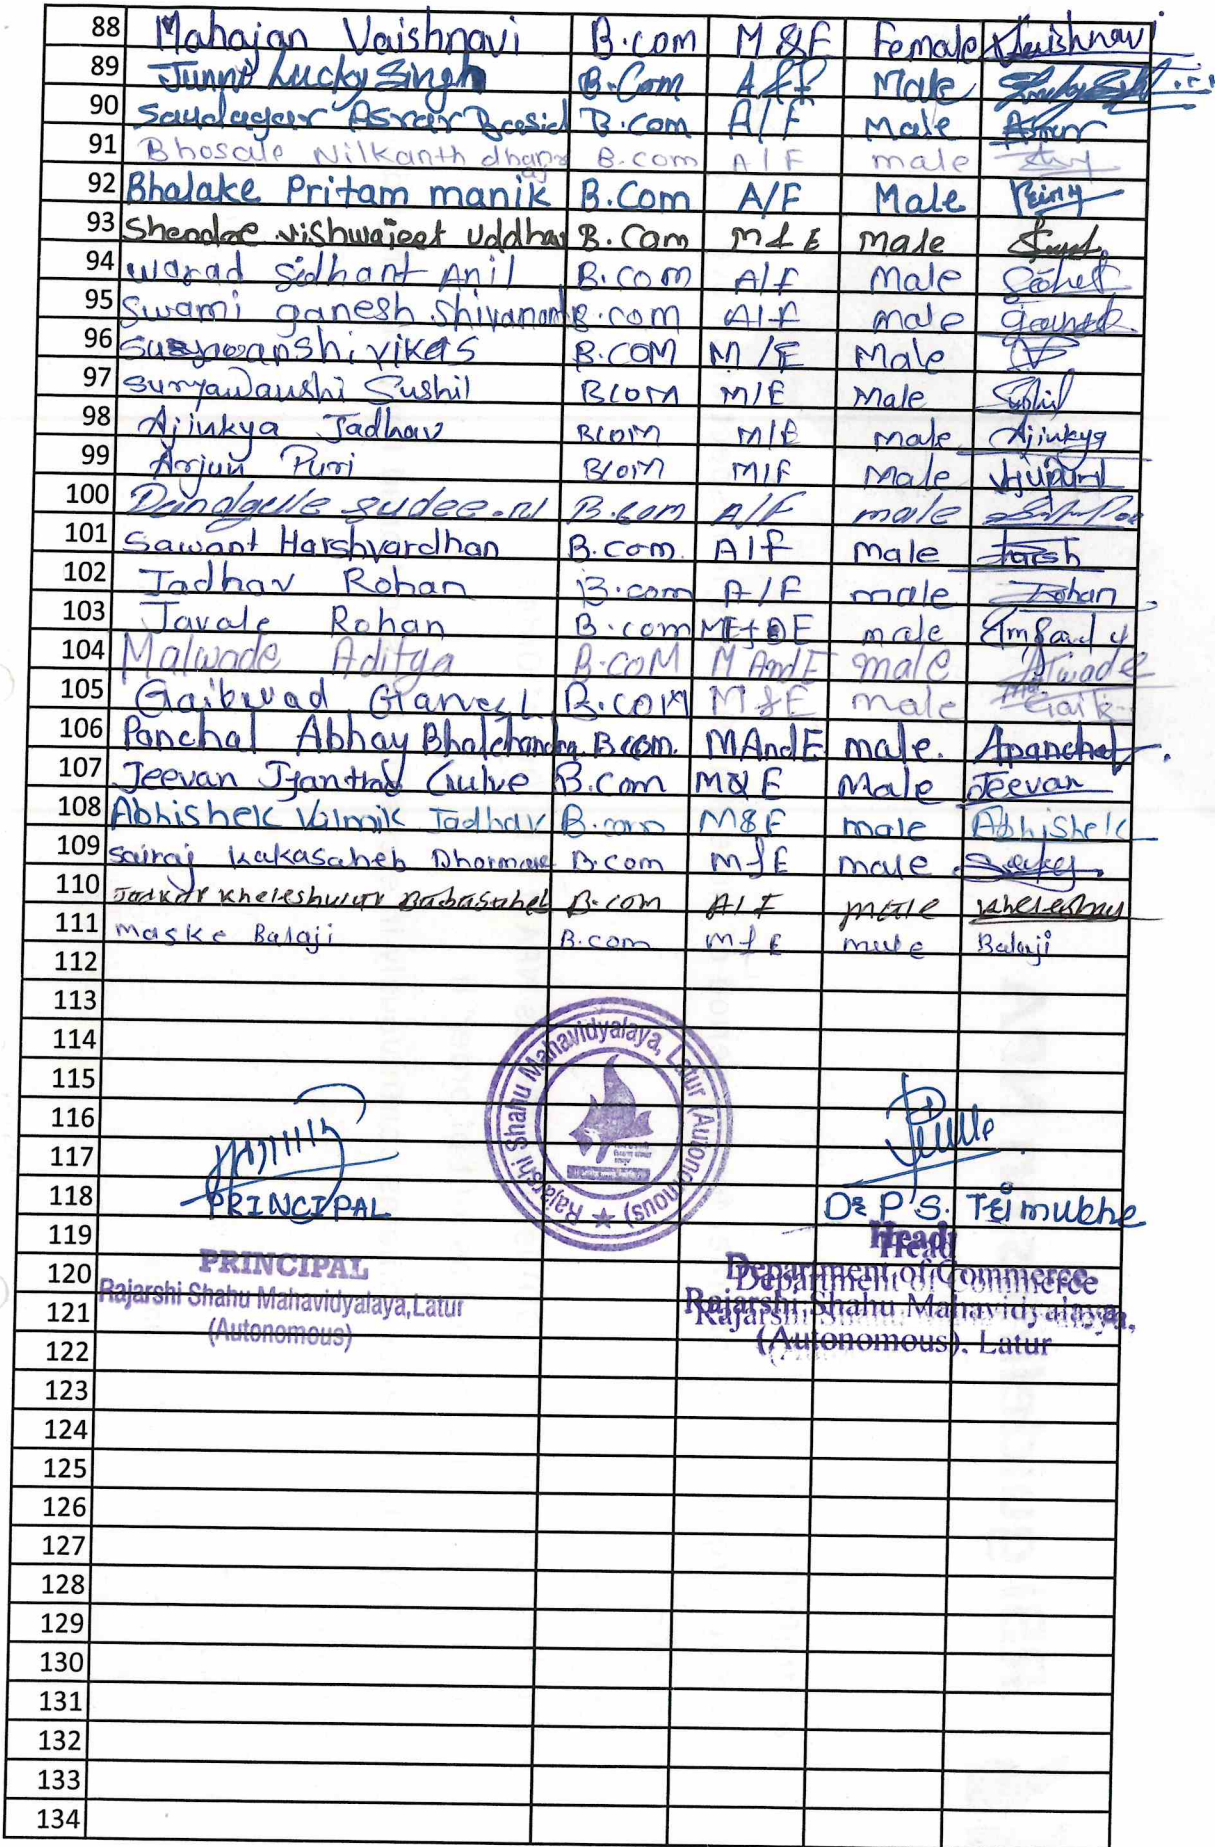 88 Mahajan Vaishnavi B.com M&F Female Vaishnavi
89 Junni Lucky Singh B.Com A&F Male
90 Saudagar Asrar B.Com A/F Male Asrar
91 Bhosale Nilkanth B.com A/F male
92 Bhalake Pritam manik B.Com A/F Male
93 Shendge vishwajeet uddhav B.Com M&E male
94 warad sidhant Anil B.com A/F Male
95 Swami ganesh Shivanand B.com A/F male ganesh
96 Suryawanshi vikas B.COM M/E Male
97 Suryawanshi Sushil BCOM M/E Male Sushil
98 Ajinkya Jadhav BCOM M/E male Ajinkya
99 Arjun Puri BCOM M/F Male
100 B.com A/F male
101 Sawant Harshvardhan B.com. A/f male Harsh
102 Jadhav Rohan B.com A/F male Rohan
103 Javale Rohan B.com male
104 Malwade Aditya B.COM M AndE male
105 Gaikwad B.COM M&E male Gaik
106 Panchal Abhay Bhalchandra B com. MAndE male. Apanchal
107 Jeevan Gulve B.Com M&E Male Jeevan
108 Abhishek Valmik Jadhav B.com M&F male Abhishek
109 Sairaj kakasaheb B.com M&E male
110 Kheleshwar Babasaheb B.com A/F male
111 maske Balaji B.com M&E male Balaji
112
113
114
115
116
117
118
119
120
121
122
123
124
125
126
127
128
129
130
131
132
133
134
Rajarshi Shahu Mahavidyalaya, Latur (Autonomous) ★
PRINCIPAL
PRINCIPAL
Rajarshi Shahu Mahavidyalaya, Latur
(Autonomous)
Dr P.S.
Head
Department of Commerce
Rajarshi Shahu Mahavidyalaya,
(Autonomous), Latur